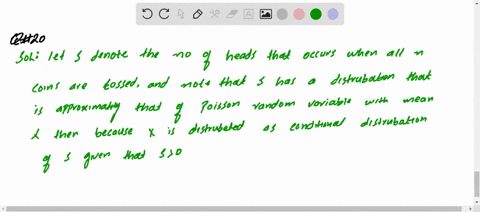 Q#20
Sol: let S denote the no of heads that occurs when all n
coins are tossed, and note that S has a distrubation that
is approximatly that of Poisson random variable with mean
λ then because X is distrubeted as conditional distrubation
of S given that S>0